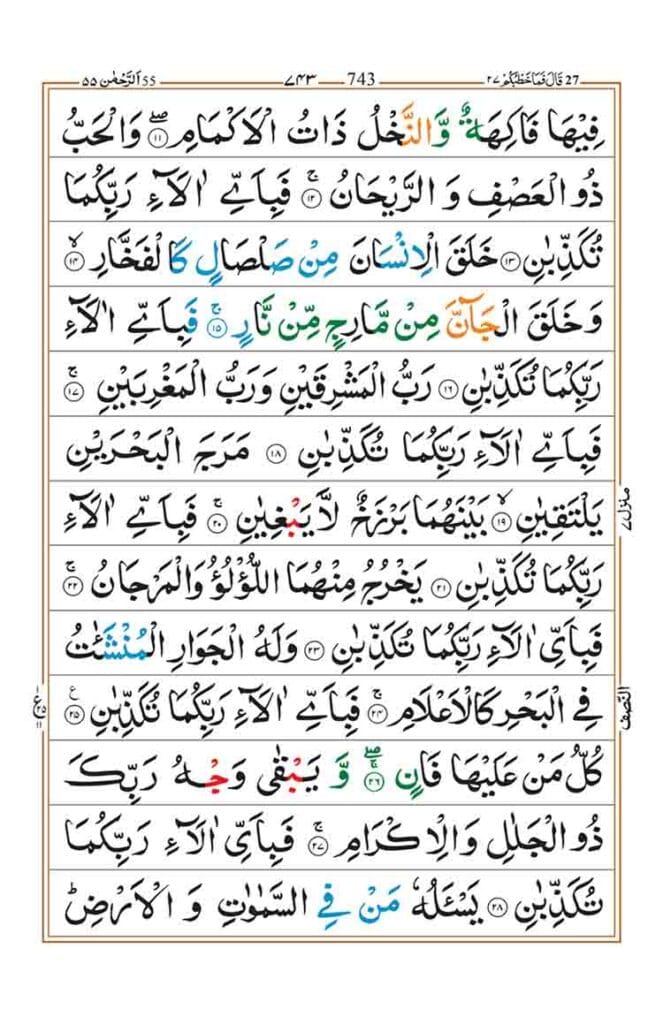 27 قَالَ فَمَا خَطْبُكُمْ ٢٧ 743 ٧٤٣ 55 اَلرَّحْمٰن ٥٥
فِيْهَا فَاكِهَةٌ وَّالنَّخْلُ ذَاتُ الْاَكْمَامِ ۖ‏﴿۱۱﴾ وَالْحَبُّ
ذُو الْعَصْفِ وَ الرَّيْحَانُ ۚ‏﴿۱۲﴾ فَبِاَيِّ اٰلَآءِ رَبِّكُمَا
تُكَذِّبٰنِ ﴿۱۳﴾ خَلَقَ الْاِنْسَانَ مِنْ صَلْصَالٍ كَالْفَخَّارِ ۙ‏﴿۱۴﴾
وَ خَلَقَ الْجَآنَّ مِنْ مَّارِجٍ مِّنْ نَّارٍ ۚ‏﴿۱۵﴾ فَبِاَيِّ اٰلَآءِ
رَبِّكُمَا تُكَذِّبٰنِ ﴿۱۶﴾ رَبُّ الْمَشْرِقَيْنِ وَرَبُّ الْمَغْرِبَيْنِ ۚ‏﴿۱۷﴾
فَبِاَيِّ اٰلَآءِ رَبِّكُمَا تُكَذِّبٰنِ ﴿۱۸﴾ مَرَجَ الْبَحْرَيْنِ
يَلْتَقِيٰنِ ۙ‏﴿۱۹﴾ بَيْنَهُمَا بَرْزَخٌ لَّا يَبْغِيٰنِ ۚ‏﴿۲۰﴾ فَبِاَيِّ اٰلَآءِ
رَبِّكُمَا تُكَذِّبٰنِ ﴿۲۱﴾ يَخْرُجُ مِنْهُمَا اللُّؤْلُؤُ وَالْمَرْجَانُ ۚ‏﴿۲۲﴾
فَبِاَيِّ اٰلَآءِ رَبِّكُمَا تُكَذِّبٰنِ ﴿۲۳﴾ وَلَهُ الْجَوَارِ الْمُنْشَئٰتُ
فِي الْبَحْرِ كَالْاَعْلَامِ ۚ‏﴿۲۴﴾ فَبِاَيِّ اٰلَآءِ رَبِّكُمَا تُكَذِّبٰنِ ﴿۲۵﴾ ع
كُلُّ مَنْ عَلَيْهَا فَانٍ ۖۚ‏﴿۲۶﴾ وَّ يَبْقٰى وَجْهُ رَبِّكَ
ذُو الْجَلٰلِ وَالْاِكْرَامِ ۚ‏﴿۲۷﴾ فَبِاَيِّ اٰلَآءِ رَبِّكُمَا
تُكَذِّبٰنِ ﴿۲۸﴾ يَسْـَٔلُهٗ مَنْ فِي السَّمٰوٰتِ وَ الْاَرْضِ ؕ
منزل ٧
النصف